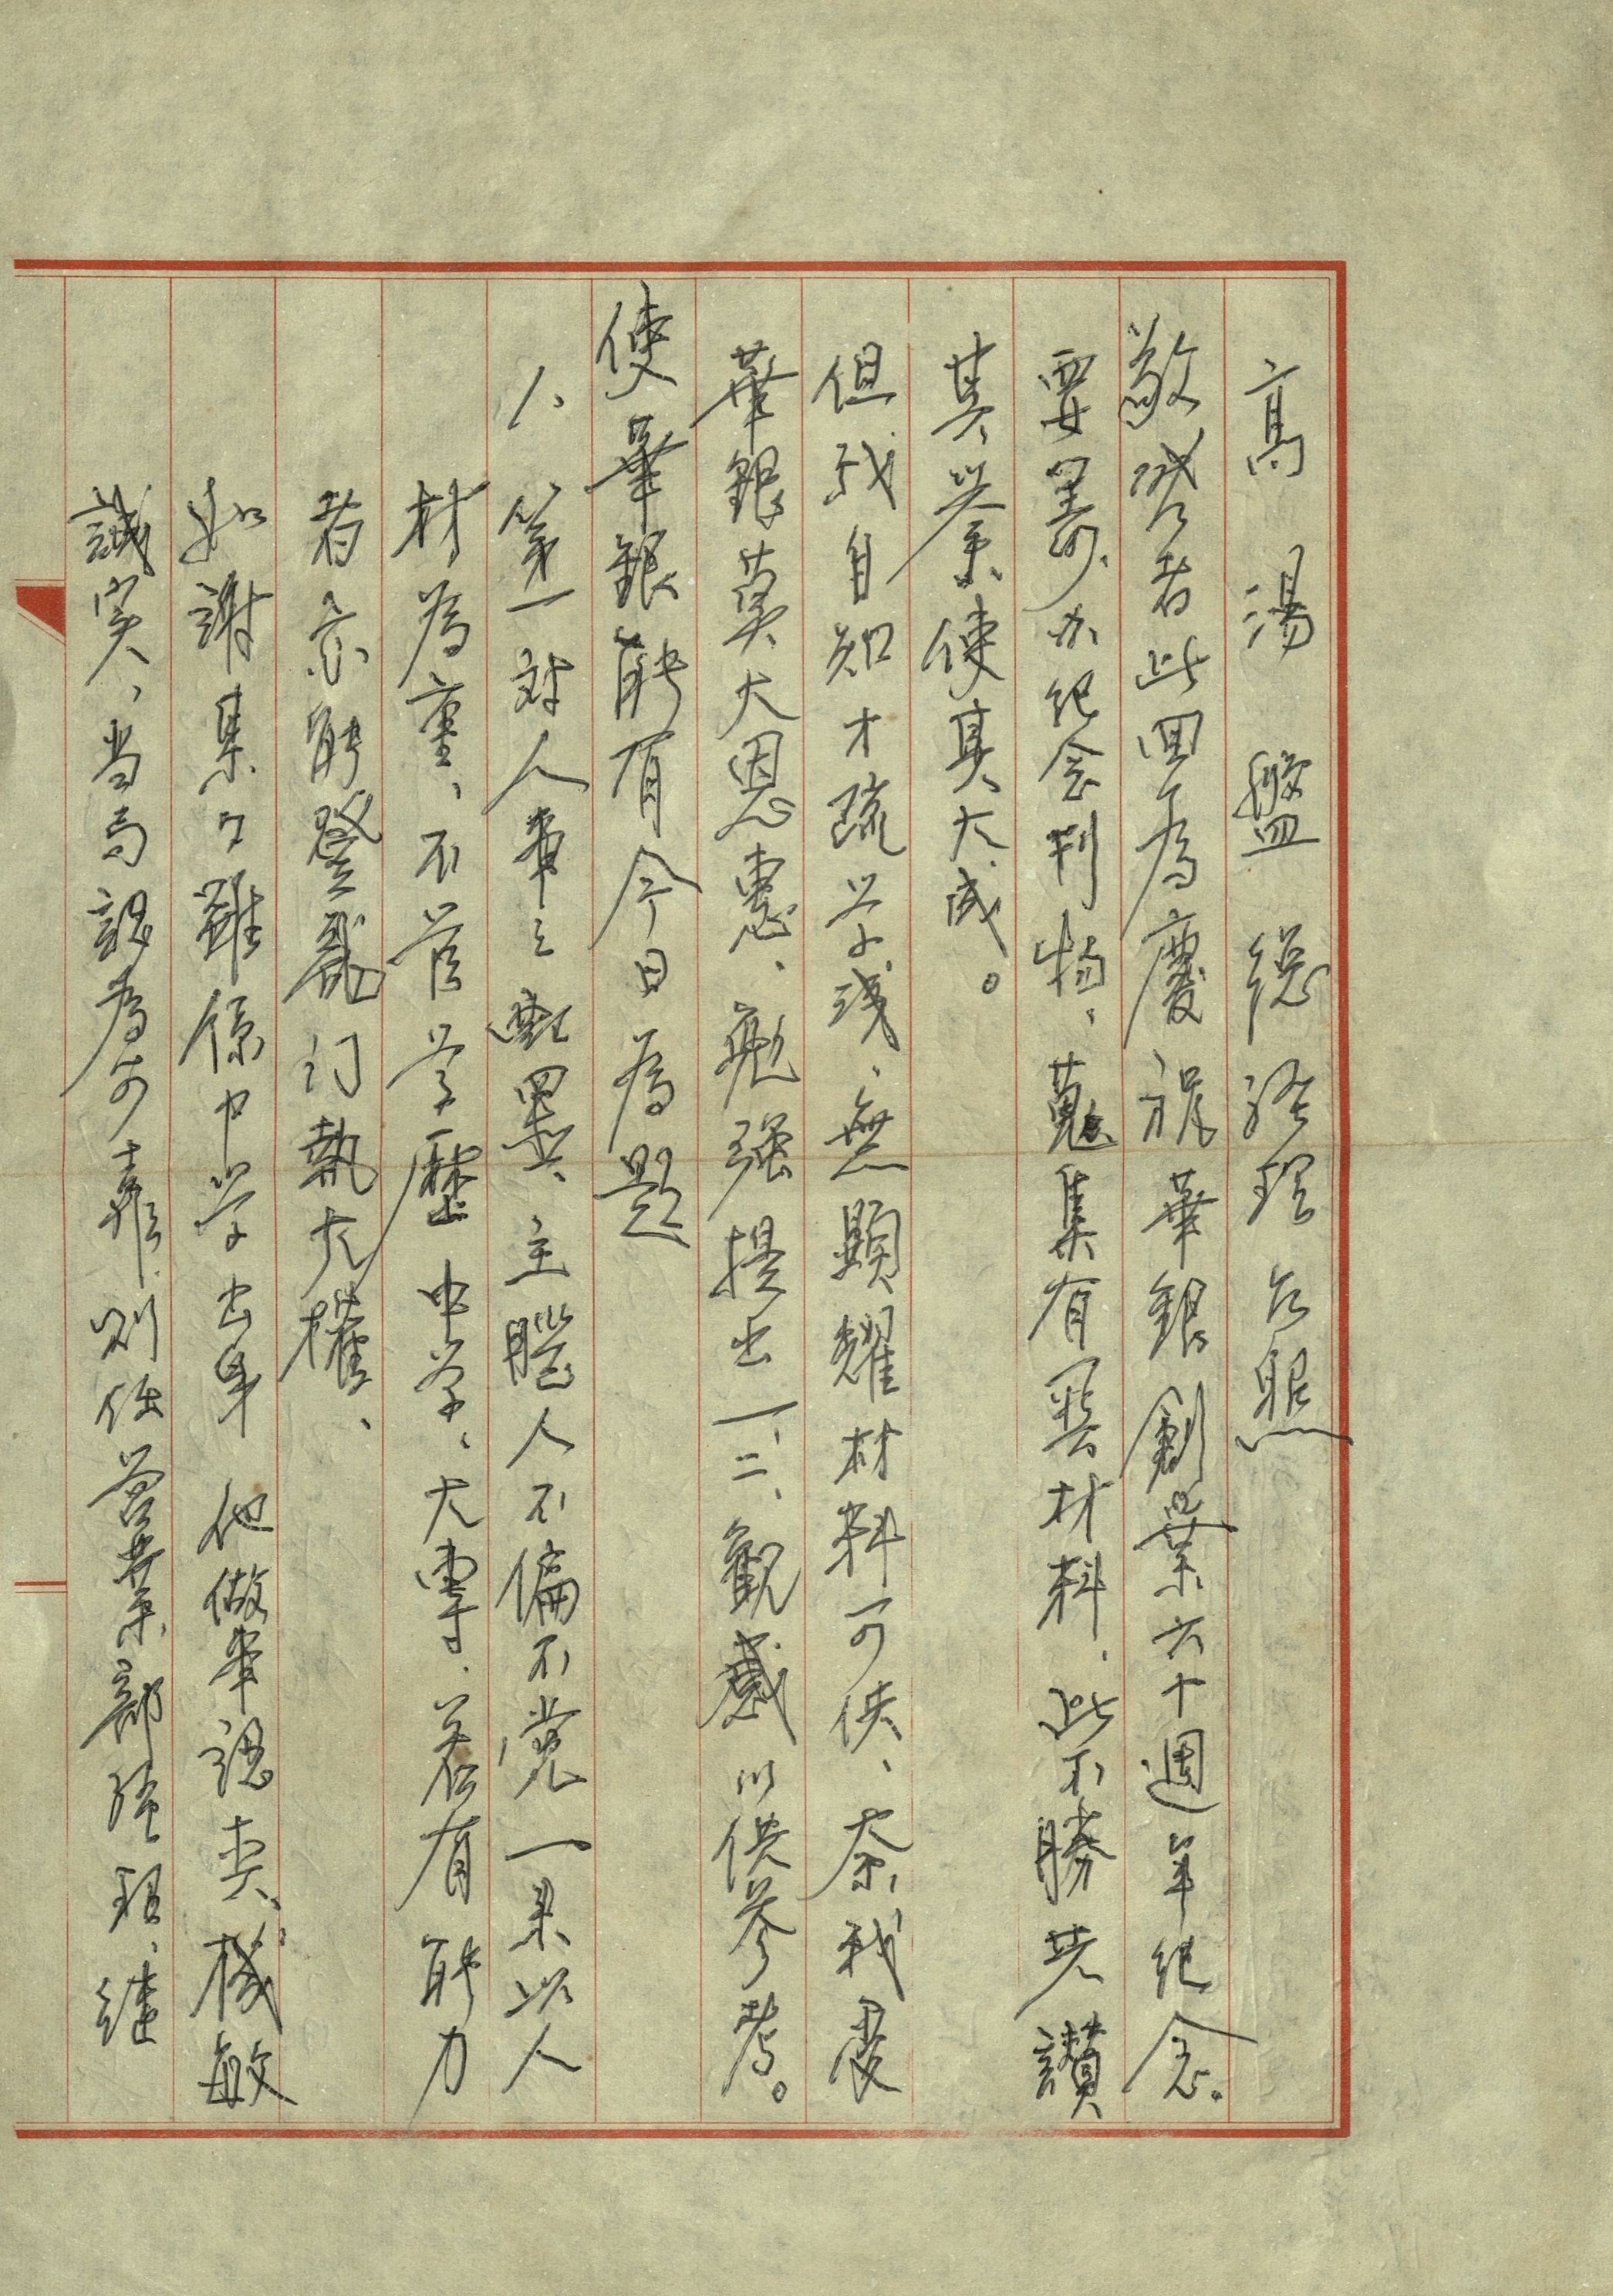 高湯盤總経理台照
敬啓者此回為慶祝華銀創業六十週年紀念。
要籌办纪念刋物、蒐集有関材料、此不勝共讃
其舉使其大成。
但我自知才疏学浅、無顕耀材料可供、奈我受
華銀莫大恩惠、勉强提出一、二、観感以供参考。
使華銀能有今日為題
1、第一對人事之配置、主腦人不偏不党一杲以人
材為重、不管学歷中学、大專、若有能力
者亦能登龍门執大權、
如謝集 雖係中学出身 他做事認真、機敏
誠実、当局認為可靠、则任营業部経理、継